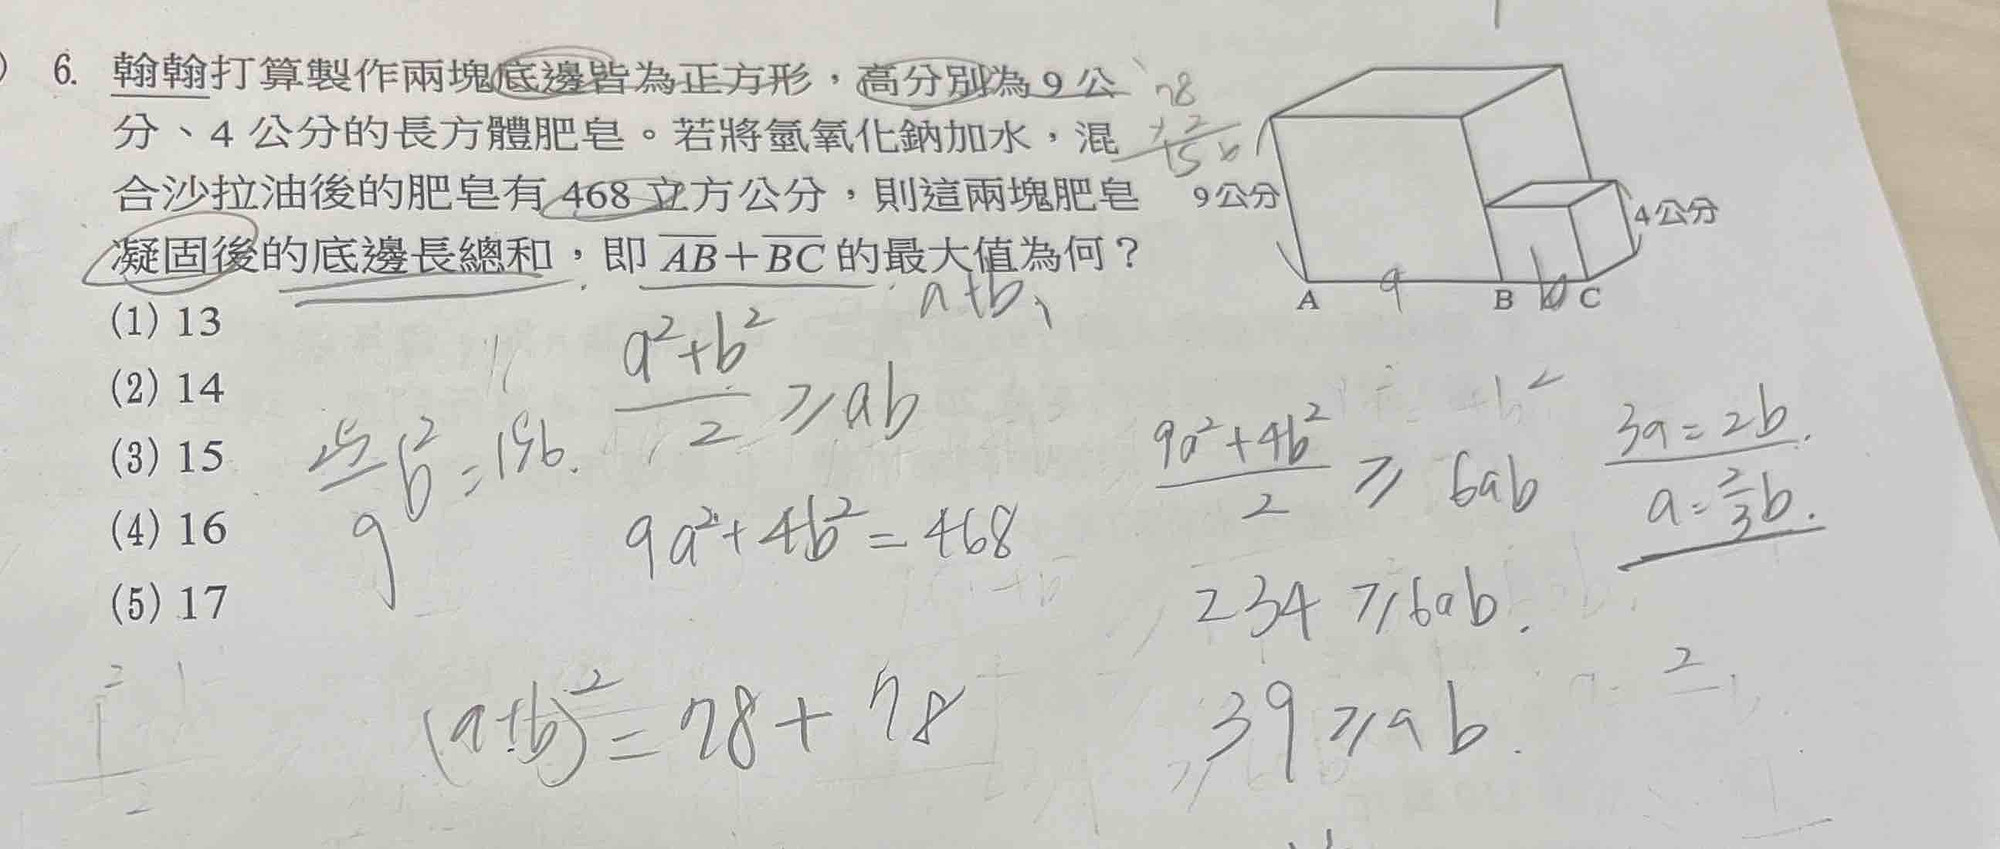 6. 翰翰打算製作兩塊底邊皆為正方形，高分別為 9 公
分、4 公分的長方體肥皂。若將氫氧化鈉加水，混
合沙拉油後的肥皂有 468 立方公分，則這兩塊肥皂
凝固後的底邊長總和，即 AB＋BC 的最大值為何？
(1) 13
(2) 14
(3) 15
(4) 16
(5) 17
9公分
4公分
A
B
C
a
b
a+b
78
a²+b²
2
≥ab
9a²+4b²=468
(a+b)²=78+78
9a²+4b²
2
≥ 6ab
234 ≥ 6ab.
39 ≥ ab.
3a=2b.
a=2/3b.